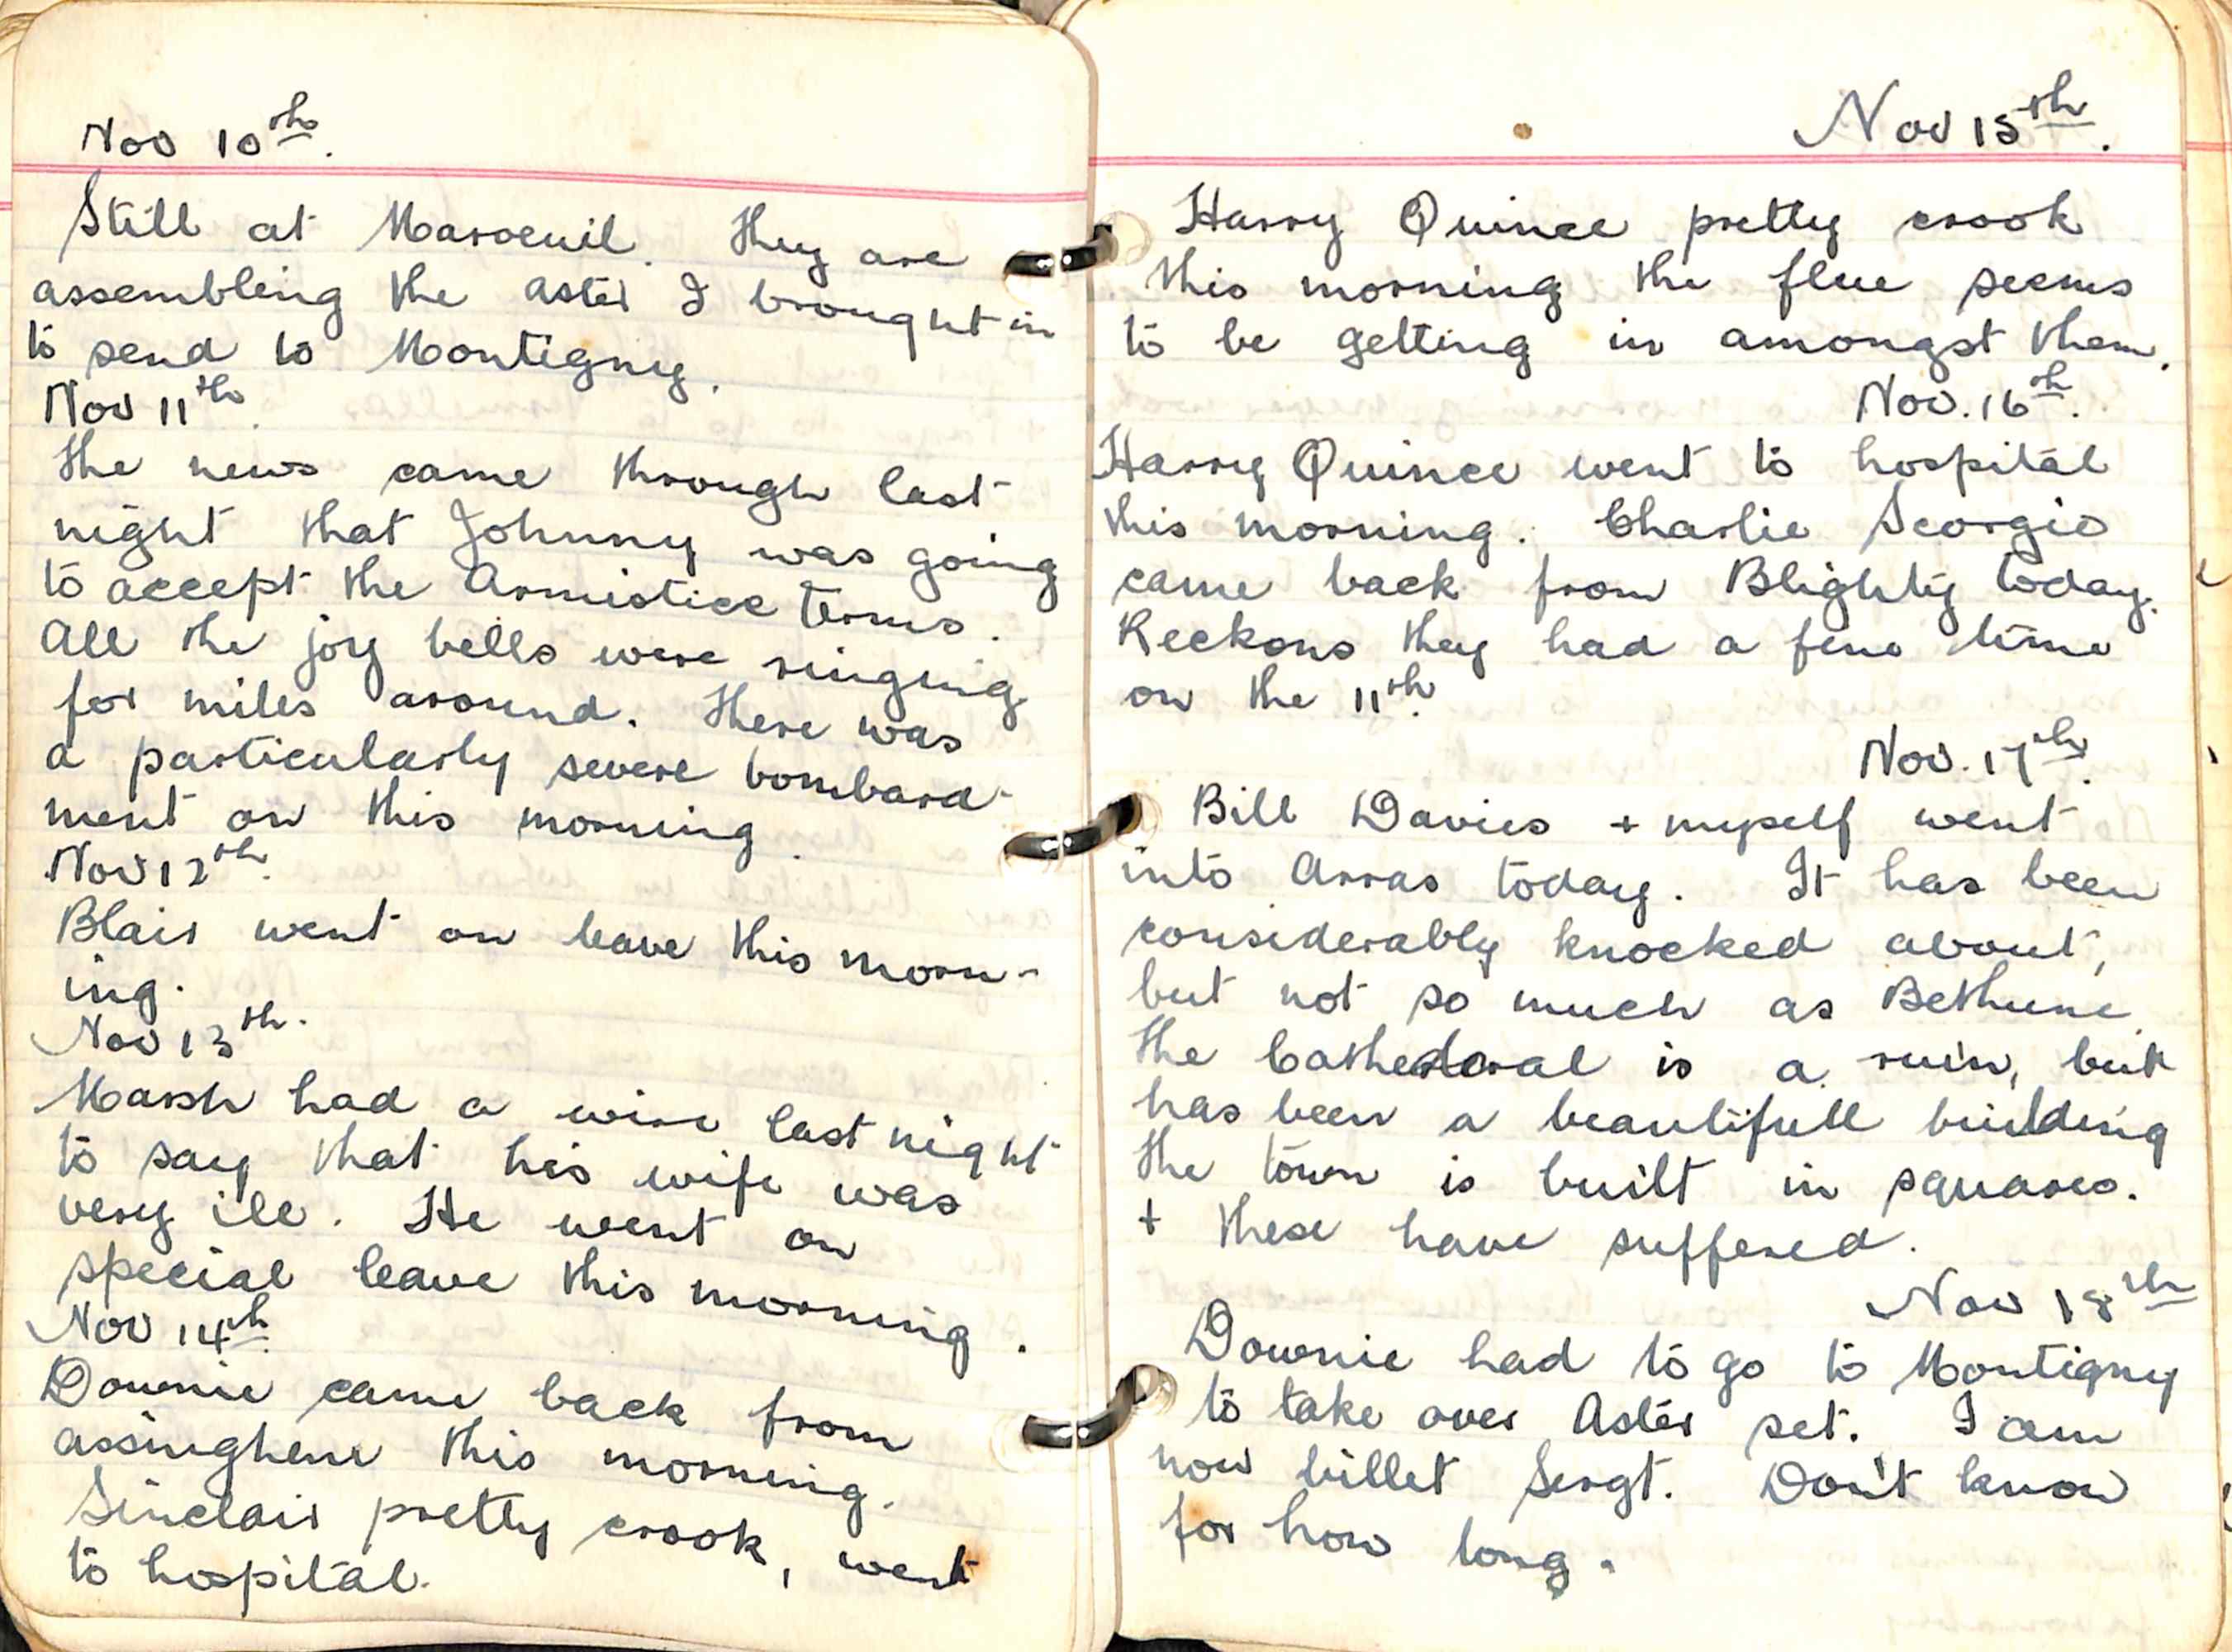 Nov 10th.
Still at Maroeuil. They are
assembling the aster I brought in
to send to Montigny.
Nov 11th.
The news came through last
night that Johnny was going
to accept the Armistice terms.
All the joy bells were ringing
for miles around. There was
a particularly severe bombard-
ment on this morning.
Nov 12th.
Blair went on leave this morn-
ing.
Nov 13th.
Marsh had a wire last night
to say that his wife was
very ill. He went on
special leave this morning.
Nov 14th.
Downie came back from
assinghem this morning.
Sinclair pretty crook, went
to hospital.
Nov 15th.
Harry Quince pretty crook
this morning the flue seems
to be getting in amongst them.
Nov. 16th.
Harry Quince went to hospital
this morning. Charlie Scorgie
came back from Blighty today.
Reckons they had a fine time
on the 11th.
Nov. 17th.
Bill Davies + myself went
into Arras today. It has been
considerably knocked about,
but not so much as Bethune.
The Cathederal is a ruin, but
has been a beautifull building
The town is built in squares.
+ these have suffered.
Nov 18th
Downie had to go to Montigny
to take over Aster set. I am
now billet Sergt. Don't know
for how long.